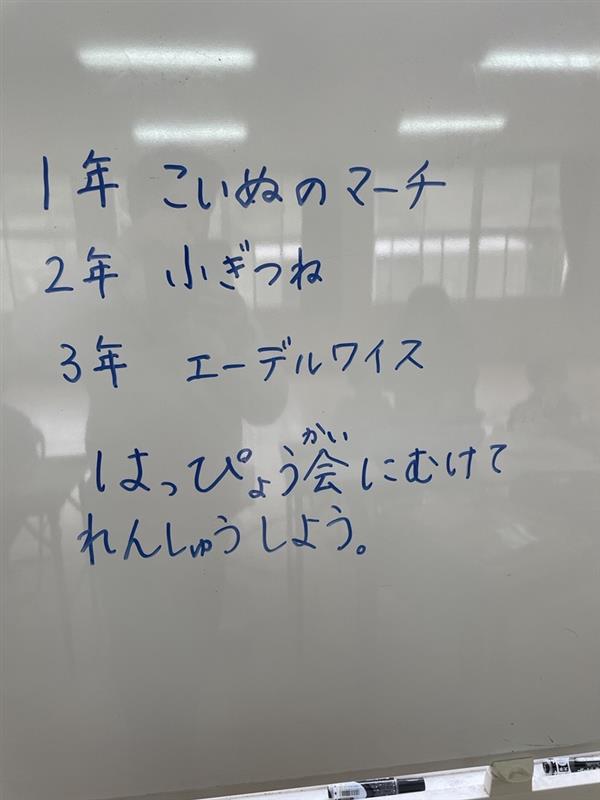 1年 こいぬのマーチ
2年 小ぎつね
3年 エーデルワイス
かい
はっぴょう会にむけて
れんしゅうしよう。